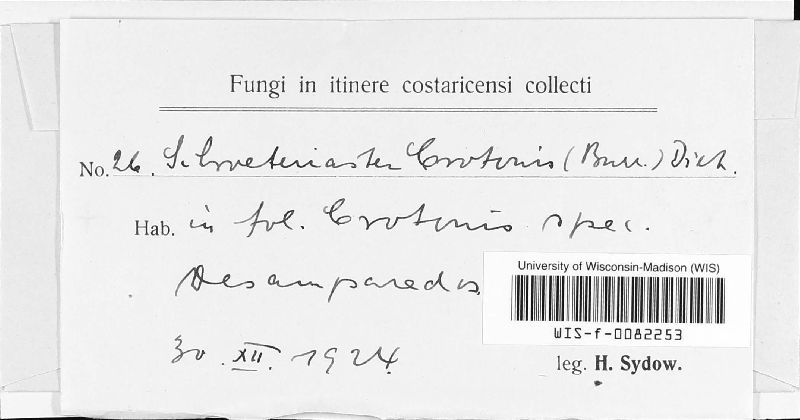 Fungi in itinere costaricensi collecti
No. 26. Schroeteriaster Crotonis (Burr.) Diet.
Hab. in fol. Crotonis spec.
Desamparedos
University of Wisconsin-Madison (WIS)
WIS-f-0082253
30. XII. 1924.
leg. H. Sydow.